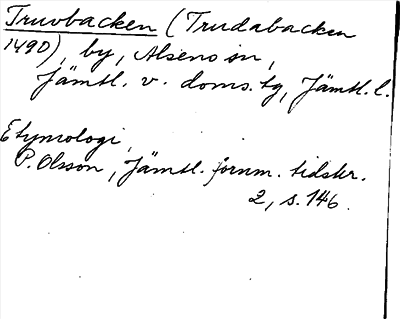 Truvbacken (Trudabacken
1490), by, Alsens sn,
Jämtl. v. doms.tg, Jämtl. l.
Etymologi,
P. Olsson, Jämtl. fornm. tidskr.
2, s. 146.